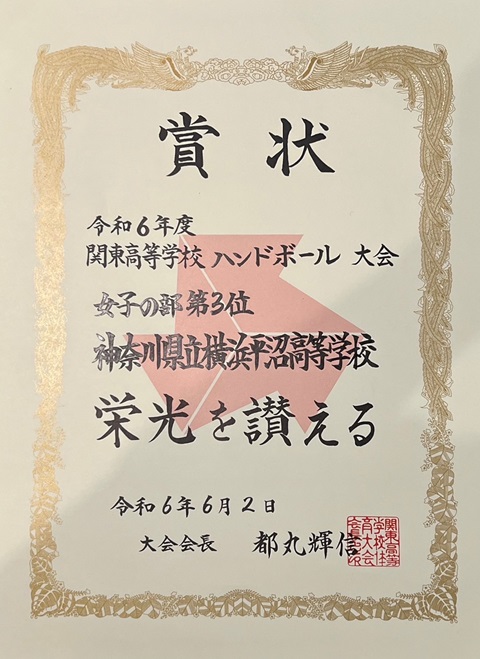 賞状
令和6年度
関東高等学校 ハンドボール 大会
女子の部 第3位
神奈川県立横浜平沼高等学校
栄光を讃える
令和6年6月2日
大会会長 都丸輝信
関東高等